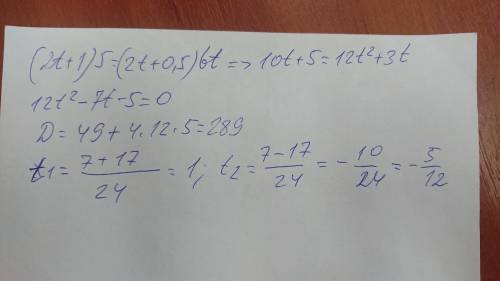 (2t+1)5=(2t+0,5)6t=>10t+5=12t²+3t
12t²-7t-5=0
D=49+4·12·5=289
t1=7+17/24=1; t2=7-17/24=-10/24=-5/12